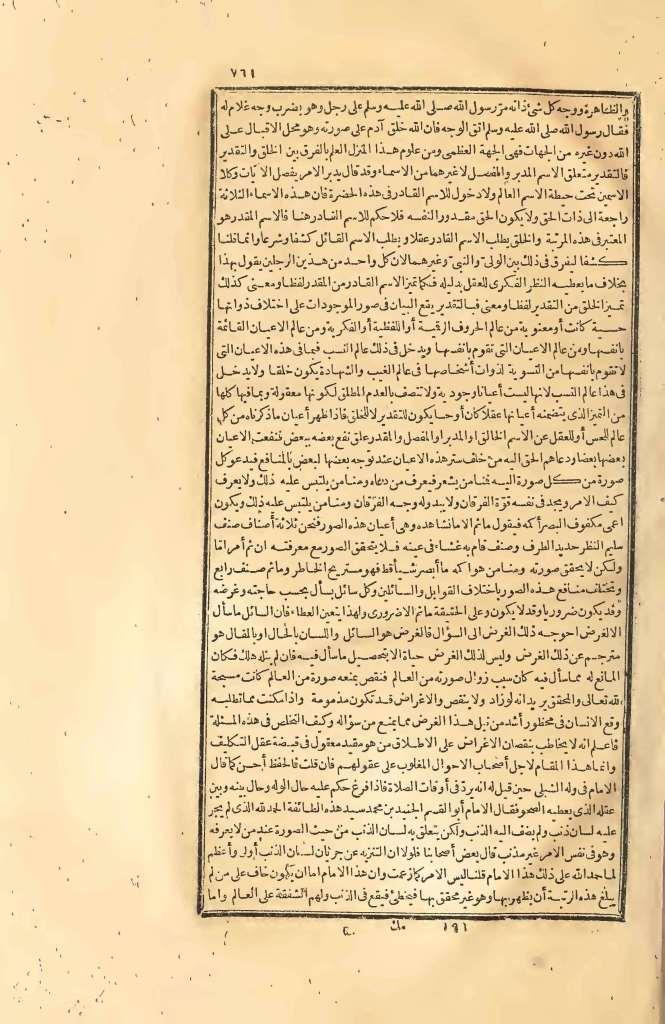 ٧٦١
والظاهرة ووجه كل شئ ذاته مر رسول الله صلى الله عليه وسلم على رجل وهو يضرب وجه غلام له
فقال رسول الله صلى الله عليه وسلم اتق الوجه فان الله خلق آدم على صورته وهو محل الاقبال على
الله دون غيره من الجهات فهى الجهة العظمى ومن علوم هذا المنزل العلم بالفرق بين الخلق والتقدير
فالتقدير متعلق الاسم المدبر والمفصل لا غيرهما من الاسماء وقد قال يدبر الامر يفصل الآيات وكلا
الاسمين تحت حيطة الاسم العالم ولا دخول للاسم القادر فى هذه الحضرة فان هذه الاسماء الثلاثة
راجعة الى ذات الحق ولا يكون الحق مقدور النفسه فلا حكم للاسم القادر هنا فالاسم المقدر هو
المعتبر فى هذه المرتبة والخلق يطلب الاسم القادر عقلا ويطلب الاسم القائل كشفا وشرعا وانما قلنا
كشفا ليفرق فى ذلك بين الولى والنبى وغيرهما لان كل واحد من هذين الرجلين يقول بهذا
بخلاف ما يعطيه النظر الفكرى للعقل بدليله فكما تميز الاسم القادر من المقدر لفظا ومعنى كذلك
تميز الخلق من التقدير لفظا ومعنى فبالتقدير يقع البيان فى صور الموجودات على اختلاف ذواتها
حسية كانت أو معنوية من عالم الحروف الرقمية أو اللفظية أو الفكرية ومن عالم الاعيان القائمة
بانفسها ومن عالم الاعيان التى تقوم بانفسها ويدخل فى ذلك عالم النسب فيما فى هذه الاعيان التى
لا تقوم بانفسها من التسوية لذوات أشخاصها فى عالم الغيب والشهادة يكون خلقا ولا يدخل
فى هذا عالم النسب لانها ليست أعيانا وجودية ولا تتصف بالعدم المطلق لكونها معقولة وبما فيها كلها
من التميز الذى يتضمنه أعيانها عقلا كان أو حسا يكون للتقدير لا للخلق فاذا ظهر أعيان ما ذكرناه من كل
عالم للحس أو للعقل عن الاسم الخالق او المدبر او المفصل والمقدر علق نفع بعضه ببعض فنفعت الاعيان
بعضها بعضا ودعاهم الحق اليه من خلف ستر هذه الاعيان عند توجه بعضها لبعض بالمنافع فيدعو كل
صورة من كل صورة اليه فمنا من يشعر فيعرف من دعاه ومنا من يلتبس عليه ذلك ولا يعرف
كيف الامر ويجد فى نفسه قوة الفرقان ولا يبدو له وجه الفرقان ومنا من يلتبس عليه ذلك ويكون
اعمى مكفوف البصر أكمه فيقول ما ثم الا ما نشاهده وهى أعيان هذه الصور فنحن ثلاثة أصناف صنف
سليم النظر حديد الطرف وصنف قام به غشاء فى عينه فلا يتحقق الصور مع معرفته ان ثم أمرا ما
ولكن لا يحقق صورته ومنا من هو اكمه ما أبصر شيأ قط فهو مستريح الخاطر وما ثم صنف رابع
وتختلف منافع هذه الصور باختلاف القوابل والسائلين وكل سائل يسأل بحسب حاجته وغرضه
وقد يكون ضروريا وقد لا يكون وعلى الحقيقة ما ثم الا ضرورى ولهذا يتعين العطاء فان السائل ما سأل
الا لغرض احوجه ذلك الغرض الى السؤال فالغرض هو السائل واللسان بالحال او بالمقال هو
مترجم عن ذلك الغرض وليس لذلك الغرض حياة الا بتحصيل ما سأل فيه فان لم ينله هلك فكان
المانع له مما سأل فيه كان سبب زوال صورته من العالم فنقص بمنعه صورة من العالم كانت مسبحة
لله تعالى والمحقق يريد انه لو زاد ولا ينقص والاغراض قد تكون مذمومة واذا مكنت مما تطلبه
وقع الانسان فى محظور أشد من نيل هذا الغرض مما يمنع من سؤاله وكيف التخلص فى هذه المسئلة
فاعلم انه لا يخاطب بنقصان الاغراض على الاطلاق من هو مقيد معقول فى قبضة عقل التكليف
وانما هذا المقام لاجل أصحاب الاحوال المغلوب على عقولهم فان قلت فالحفظ أحسن كما قال
الامام فى وله الشبلى حين قيل له انه يرد فى أوقات الصلاة فاذا فرغ حكم عليه حال الوله وحال بينه وبين
عقله الذى يعطيه الصحو فقال الامام أبو القسم الجنيد بن محمد سيد هذه الطائفة الحمد لله الذى لم يجر
عليه لسان ذنب ولم يضف اليه الذنب ولكن يتعلق به لسان الذنب من حيث الصورة عند من لا يعرفه
وهو فى نفس الامر غير مذنب قال بعض أصحابنا فلولا ان التنزيه عن جريان لسان الذنب أولى وأعظم
لما حمد الله على ذلك هذا الامام قلنا ليس الامر كما زعمت وان هذا الامام اما ان يكون خاف على من لم
يبلغ هذه الرتبة أن يظهر بها وهو غير محقق بها فيخطئ فيقع فى الذنب ولهم الشفقة على العالم واما
١٩١
مك